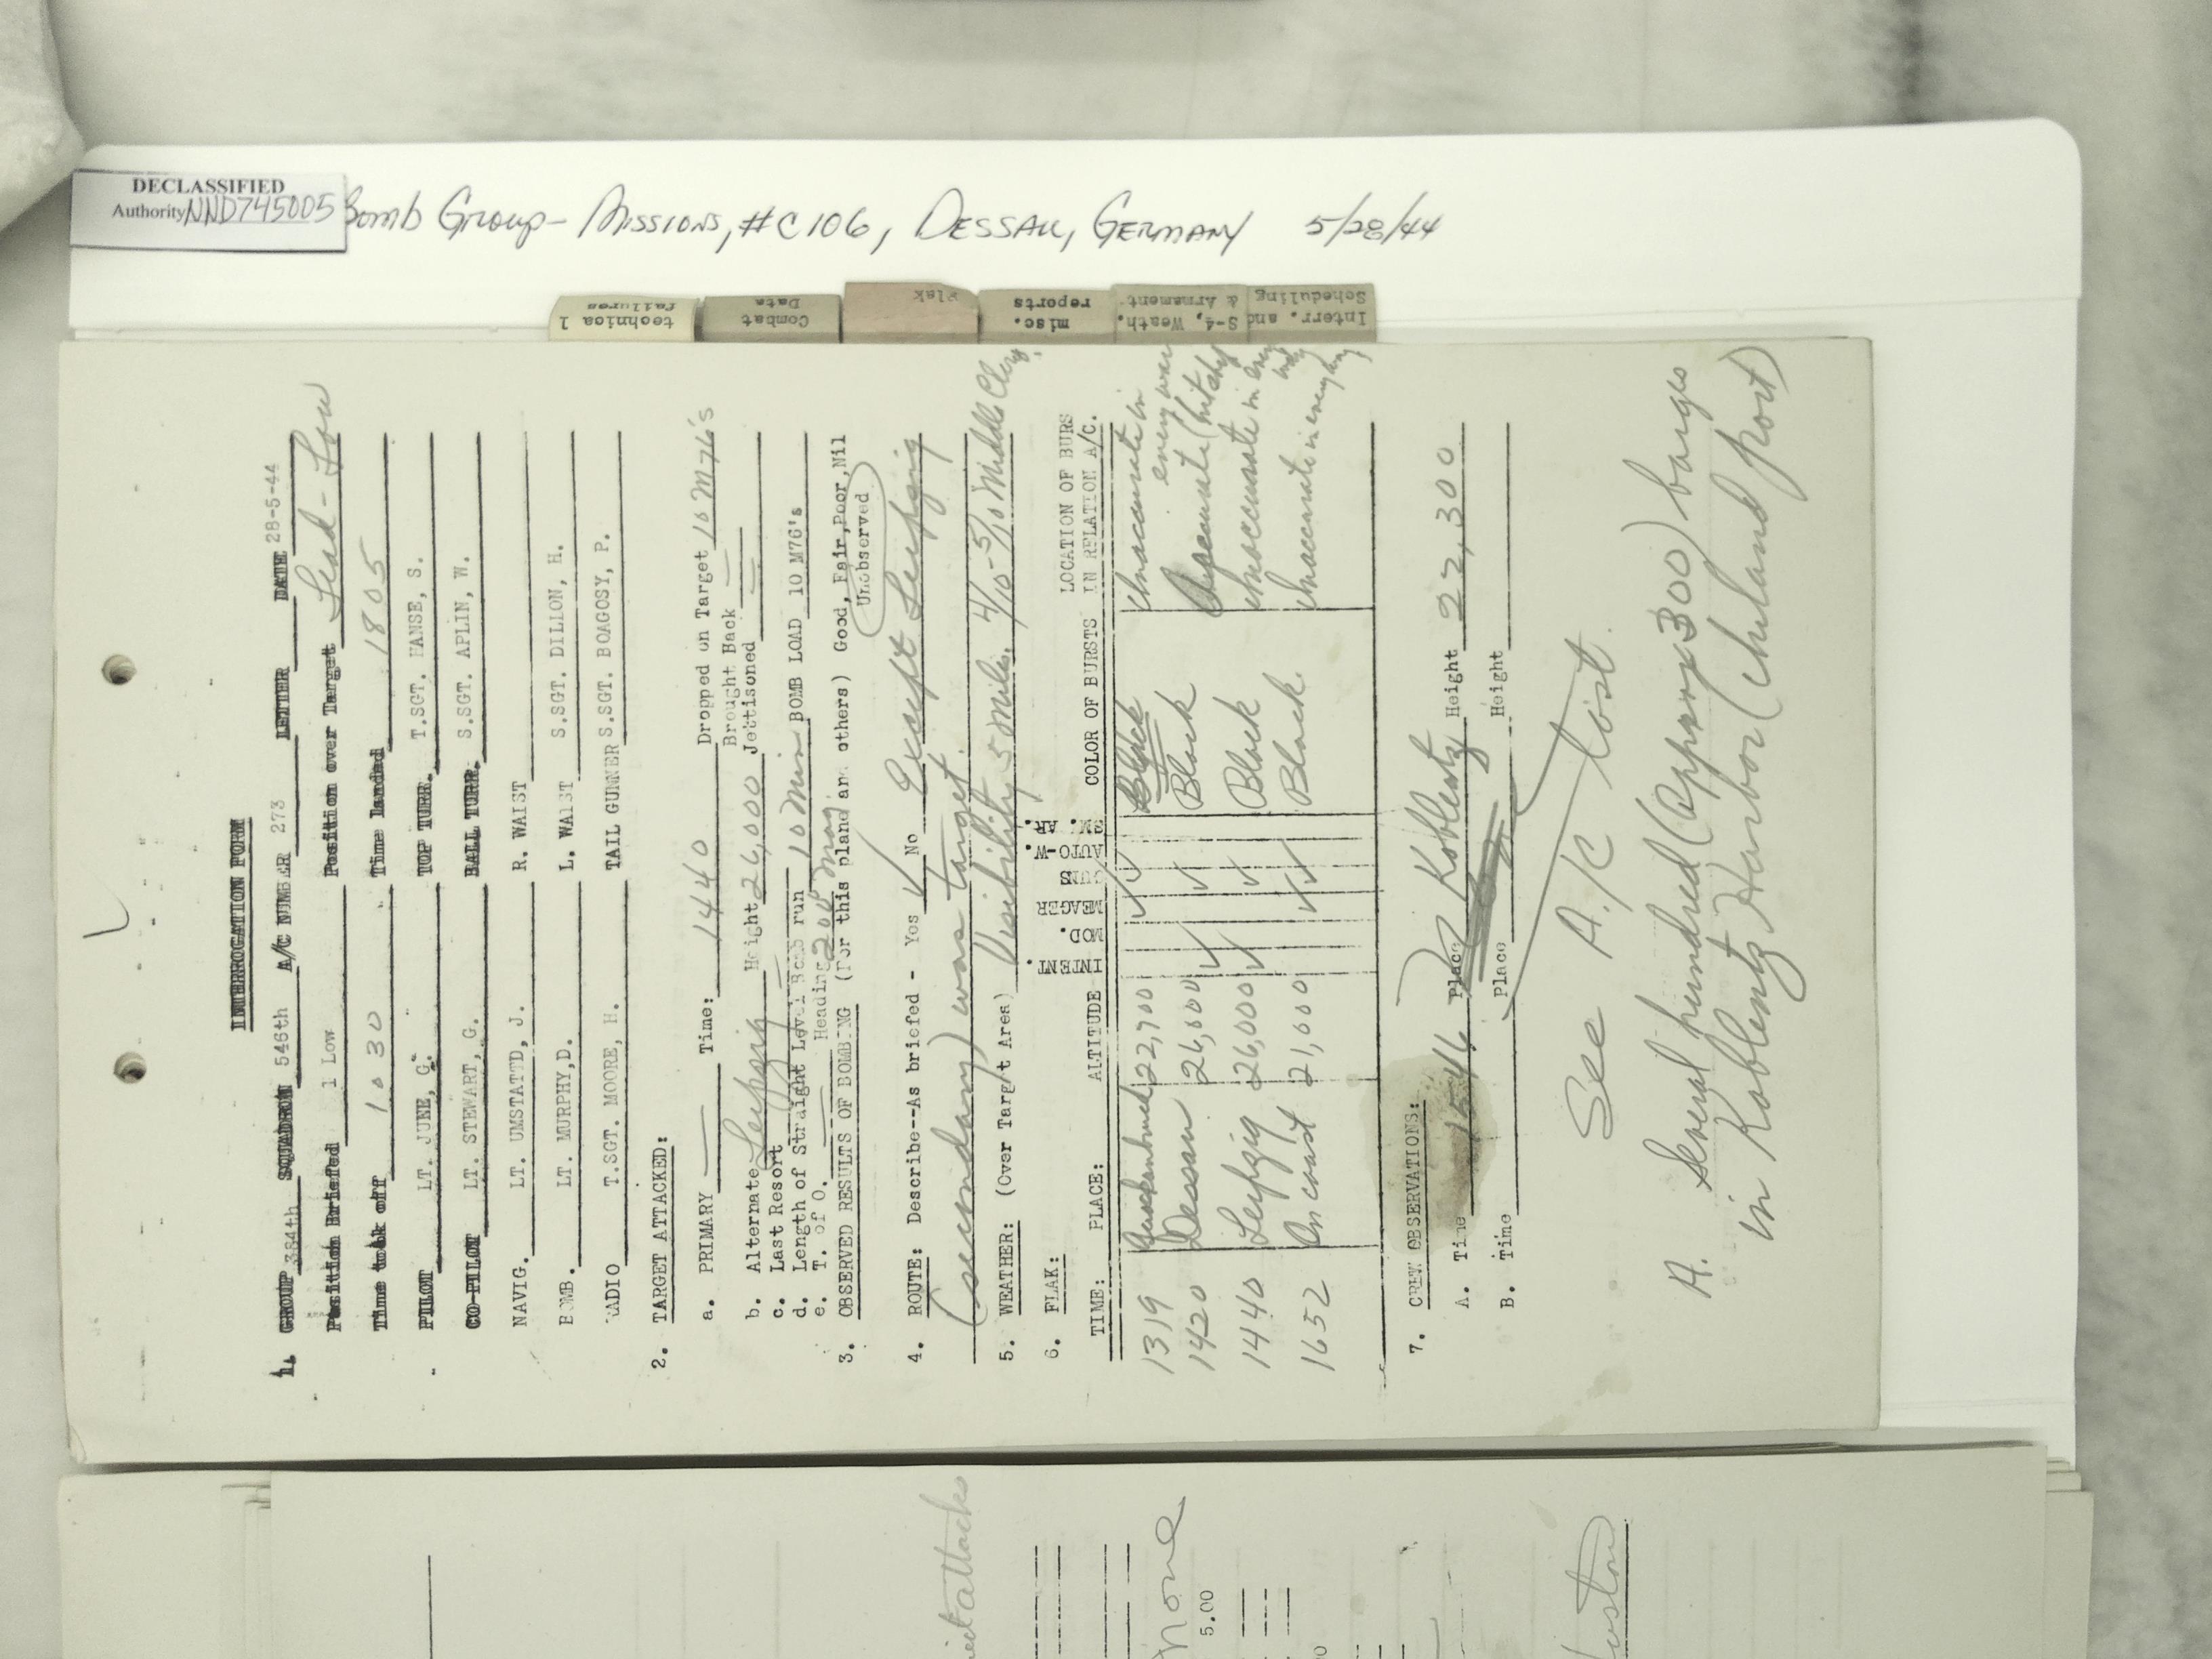 DECLASSIFIED
Authority NND745005
Bomb Group - Missions, #C106, Dessau, Germany 5/28/44
technical failures
Combat Data
Flak
misc. reports
S-4, Weath. & Armament
Interr. and Scheduling
INTERROGATION FORM
1. GROUP 384th SQUADRON 546th A/C NUMBER 273 LETTER DATE 28-5-44
Position Briefed 1 Low Position over Target Lead - Low
Time took off 1030 Time landed 1805
PILOT LT. JUNE, G. TOP TURR. T.SGT. HANSE, S.
CO-PILOT LT. STEWART, G. BALL TURR. S.SGT. APLIN, W.
NAVIG. LT. UMSTATTD, J. R. WAIST
BOMB. LT. MURPHY, D. L. WAIST S.SGT. DILLON, H.
RADIO T.SGT. MOORE, H. TAIL GUNNER S.SGT. BOAGOSY, P.
2. TARGET ATTACKED:
a. PRIMARY Time: 1440 Dropped on Target 10 M76's
Brought Back
b. Alternate Leipzig Height 26,000 Jettisoned
c. Last Resort
d. Length of Straight Level Bomb run 10 Min BOMB LOAD 10 M76's
e. T. of O. Heading 200 mag
3. OBSERVED RESULTS OF BOMBING (For this plane and others) Good, Fair, Poor, Nil
Unobserved
4. ROUTE: Describe--As briefed - Yes ✓ No Except Leipzig
(secondary) was target.
5. WEATHER: (Over Target Area) Visibility 5 miles. 4/10 - 5/10 Middle Clouds.
6. FLAK:
TIME: PLACE: ALTITUDE INTENT. MOD. MEAGER GUNS AUTO-W. SM. AR. COLOR OF BURSTS LOCATION OF BURS IN RELATION A/C.
1319 22,700 ✓ ✓ Black Inaccurate in every way
1420 Dessau 26,000 ✓ ✓ Black Accurate
1440 Leipzig 26,000 ✓ ✓ Black Inaccurate in every way
1652 On coast 21,000 ✓ ✓ Black Inaccurate in everything
7. CREW OBSERVATIONS:
A. Time 1546 Place Koblentz Height 22,300
B. Time Place Height
See A/C lost.
A. Several hundred (Approx 300) barges
in Koblentz Harbor (Inland port)
None
5.00